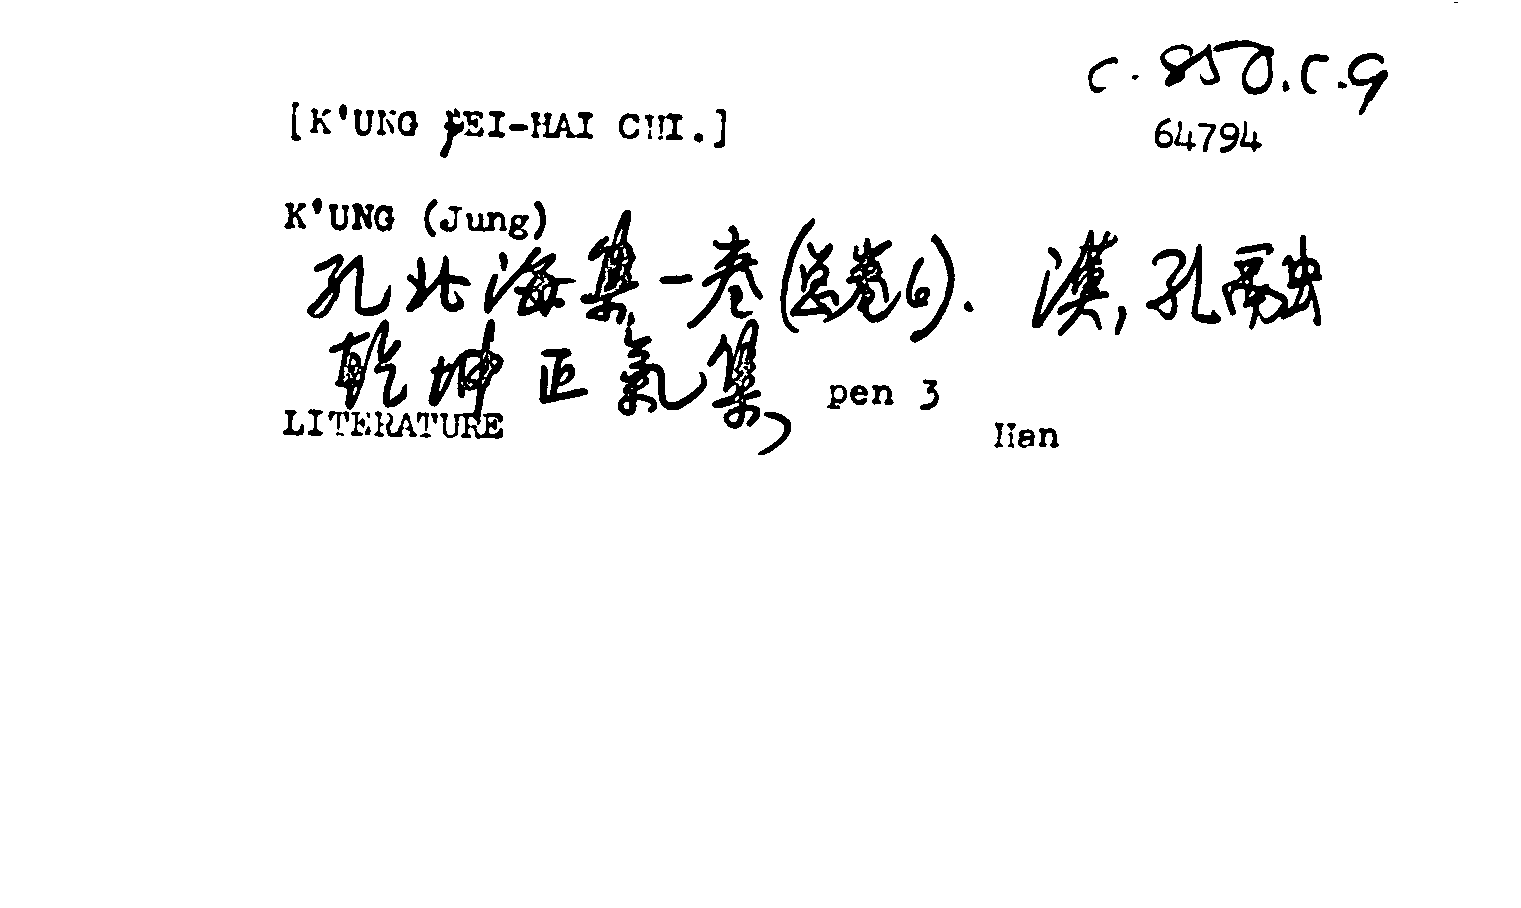 C. 850.C.9
[K'UNG PEI-HAI CHI.]
64794
K'UNG (Jung)
孔北海集一卷(总卷6). 漢,孔融
乾坤正氣集, pen 3
LITERATURE
Han